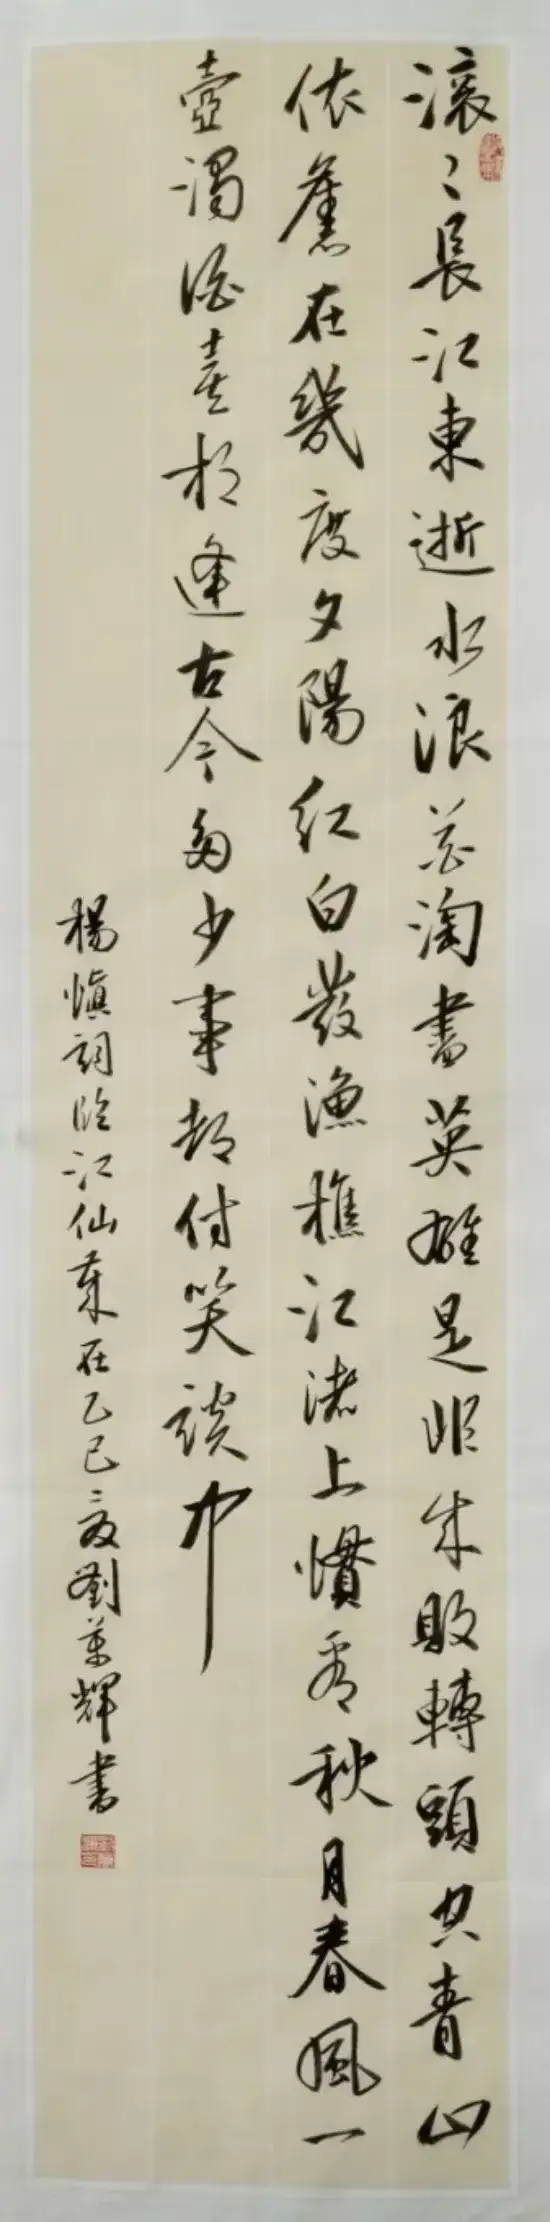 滚々長江東逝水浪花淘盡英雄是非成敗轉頭空青山
依舊在幾度夕陽紅白發漁樵江渚上慣看秋月春風一
壺濁酒喜相逢古今多少事都付笑談中
楊慎詞臨江仙歲在乙巳之夏劉輝書